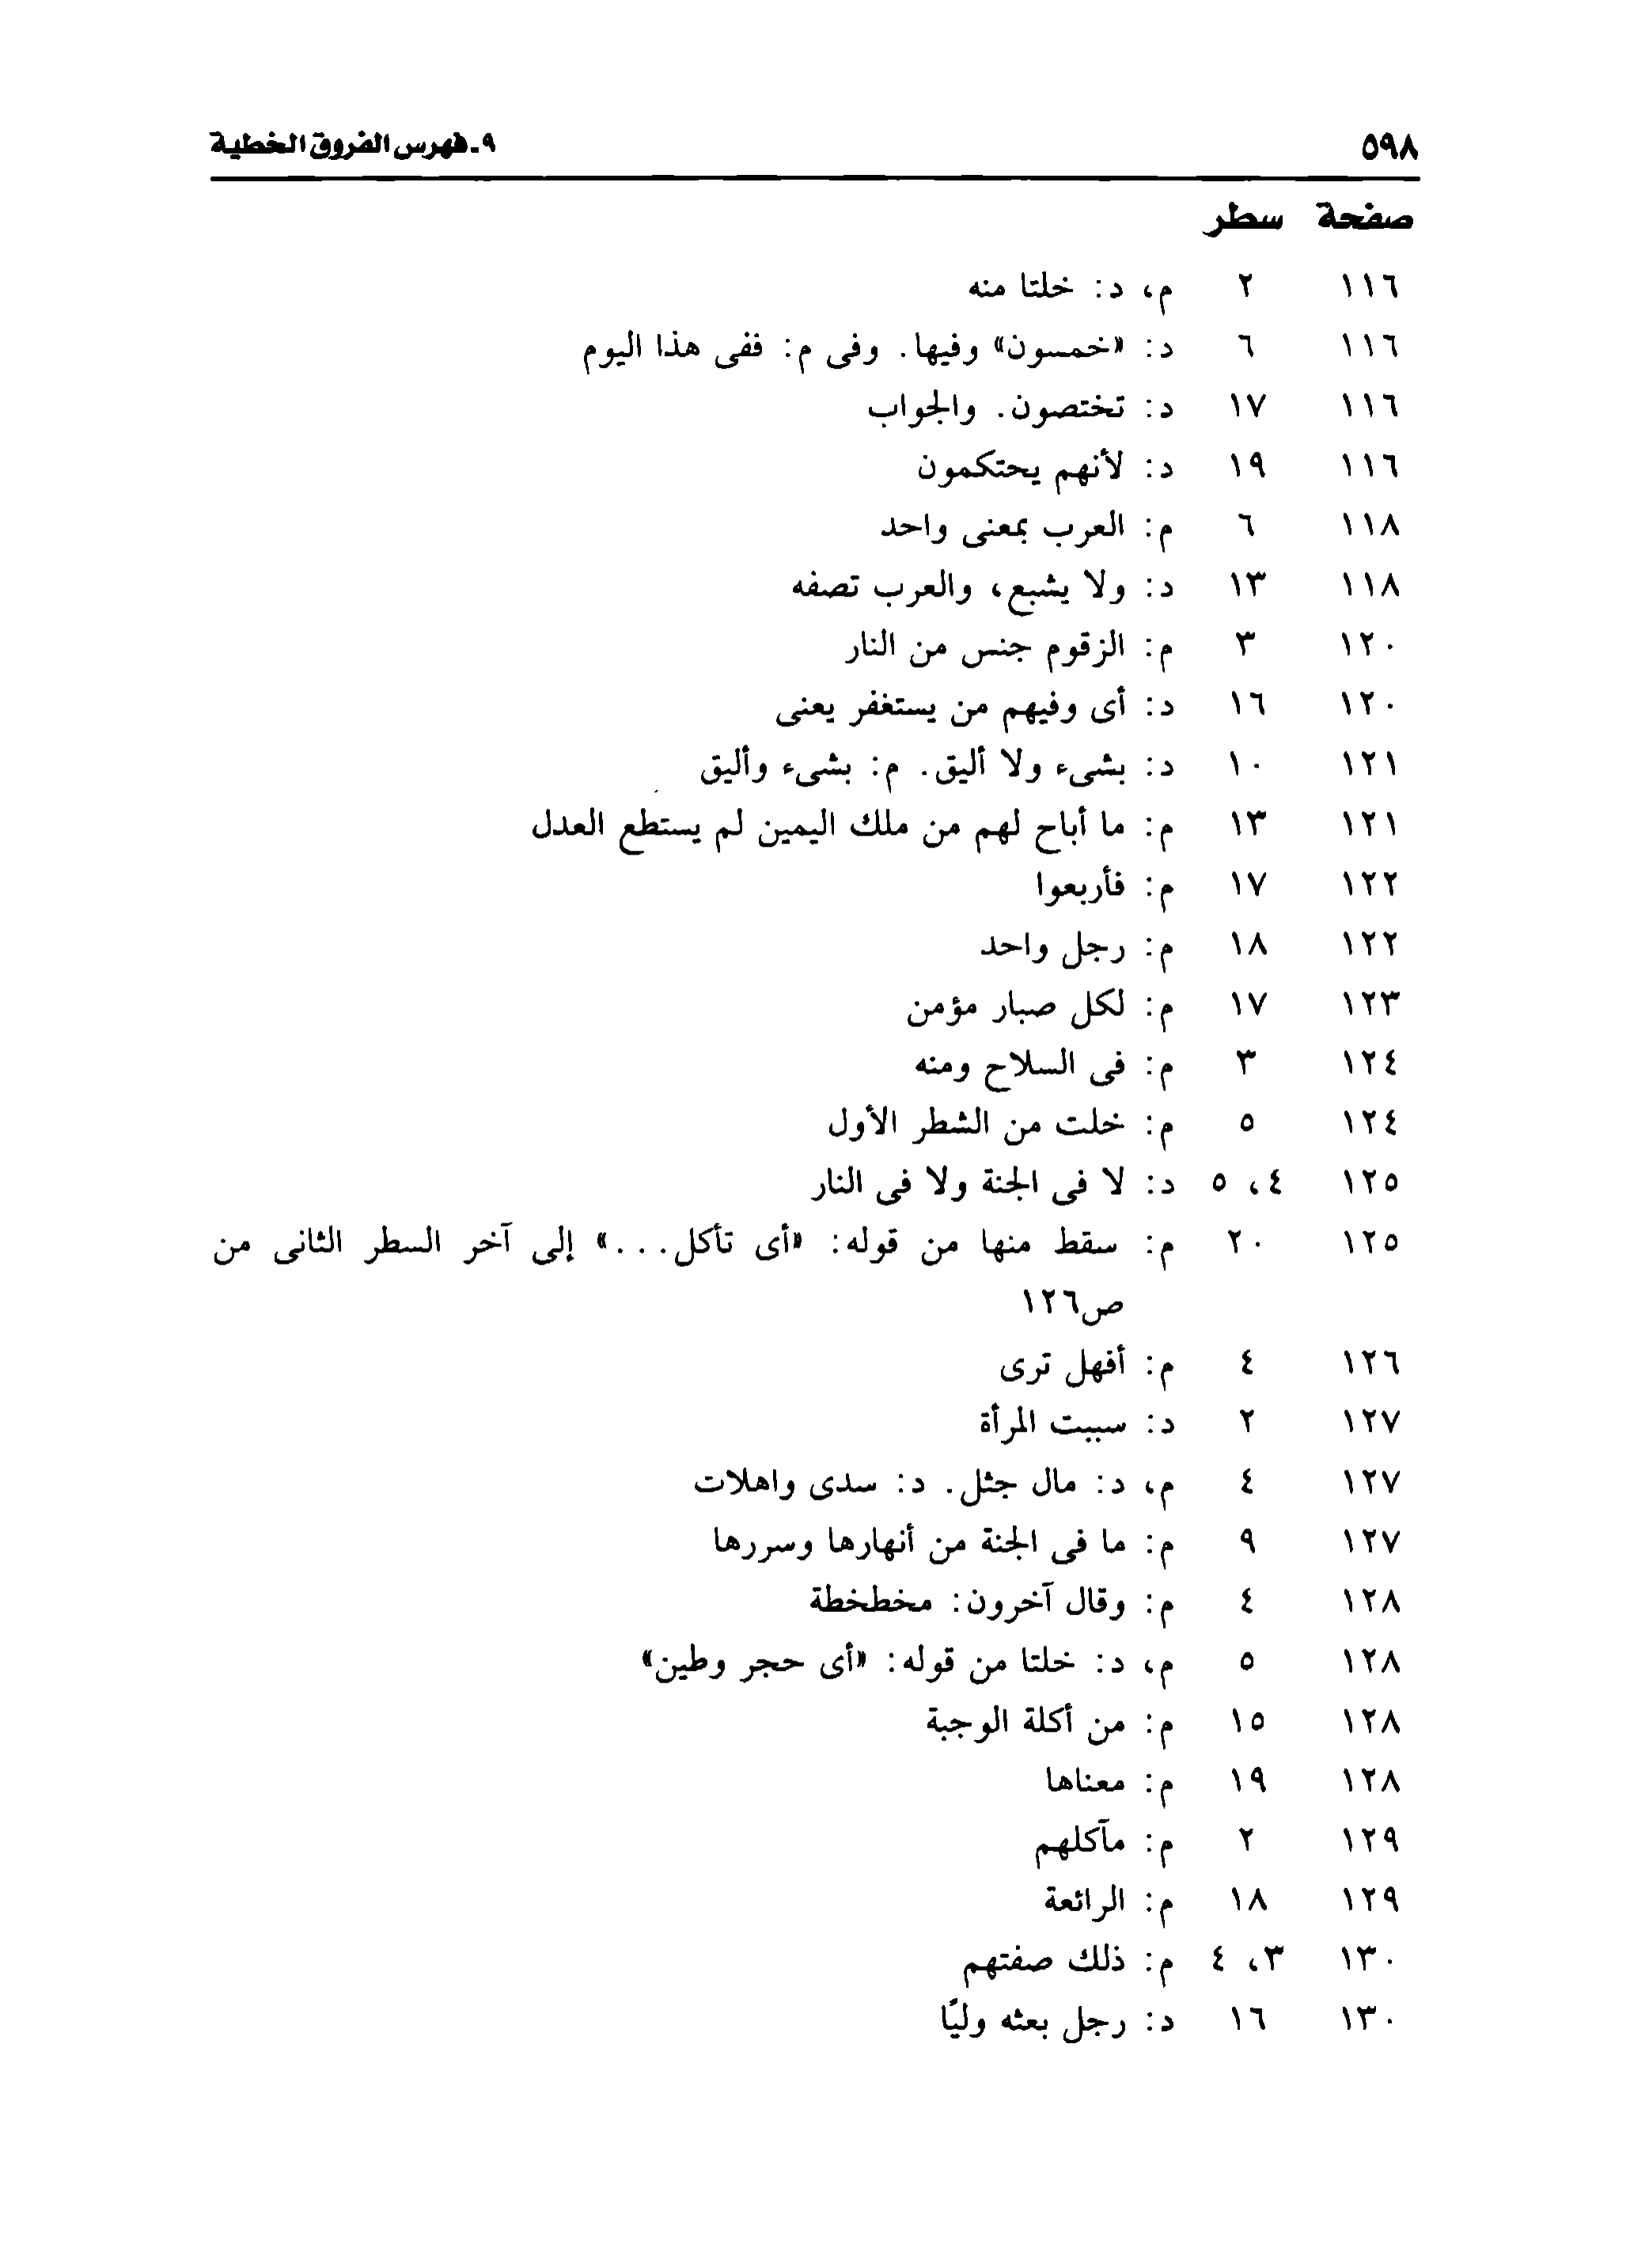 ٥٩٨ ٩ـ فهرس الفروق الخطية
صفحة سطر
١١٦ ٢ م، د: خلتا منه
١١٦ ٦ د: «خمسون» وفيها. وفى م: ففى هذا اليوم
١١٦ ١٧ د: تختصون. والجواب
١١٦ ١٩ د: لأنهم يحتكمون
١١٨ ٦ م: العرب بمعنى واحد
١١٨ ١٣ د: ولا يشبع، والعرب تصفه
١٢٠ ٣ م: الزقوم جنس من النار
١٢٠ ١٦ د: أى وفيهم من يستغفر يعنى
١٢١ ١٠ د: بشىء ولا أليق. م: بشىء وأليق
١٢١ ١٣ م: ما أباح لهم من ملك اليمين لم يستطع العدل
١٢٢ ١٧ م: فأربعوا
١٢٢ ١٨ م: رجل واحد
١٢٣ ١٧ م: لكل صبار مؤمن
١٢٤ ٣ م: فى السلاح ومنه
١٢٤ ٥ م: خلت من الشطر الأول
١٢٥ ٤، ٥ د: لا فى الجنة ولا فى النار
١٢٥ ٢٠ م: سقط منها من قوله: «أى تأكل...» إلى آخر السطر الثانى من
ص١٢٦
١٢٦ ٤ م: أفهل ترى
١٢٧ ٢ د: سببت المرأة
١٢٧ ٤ م، د: مال جثل. د: سدى واهلات
١٢٧ ٩ م: ما فى الجنة من أنهارها وسررها
١٢٨ ٤ م: وقال آخرون: مخطخطة
١٢٨ ٥ م، د: خلتا من قوله: «أى حجر وطين»
١٢٨ ١٥ م: من أكلة الوجبة
١٢٨ ١٩ م: معناها
١٢٩ ٢ م: مآكلهم
١٢٩ ١٨ م: الرائعة
١٣٠ ٣، ٤ م: ذلك صفتهم
١٣٠ ١٦ د: رجل بعثه وليًا